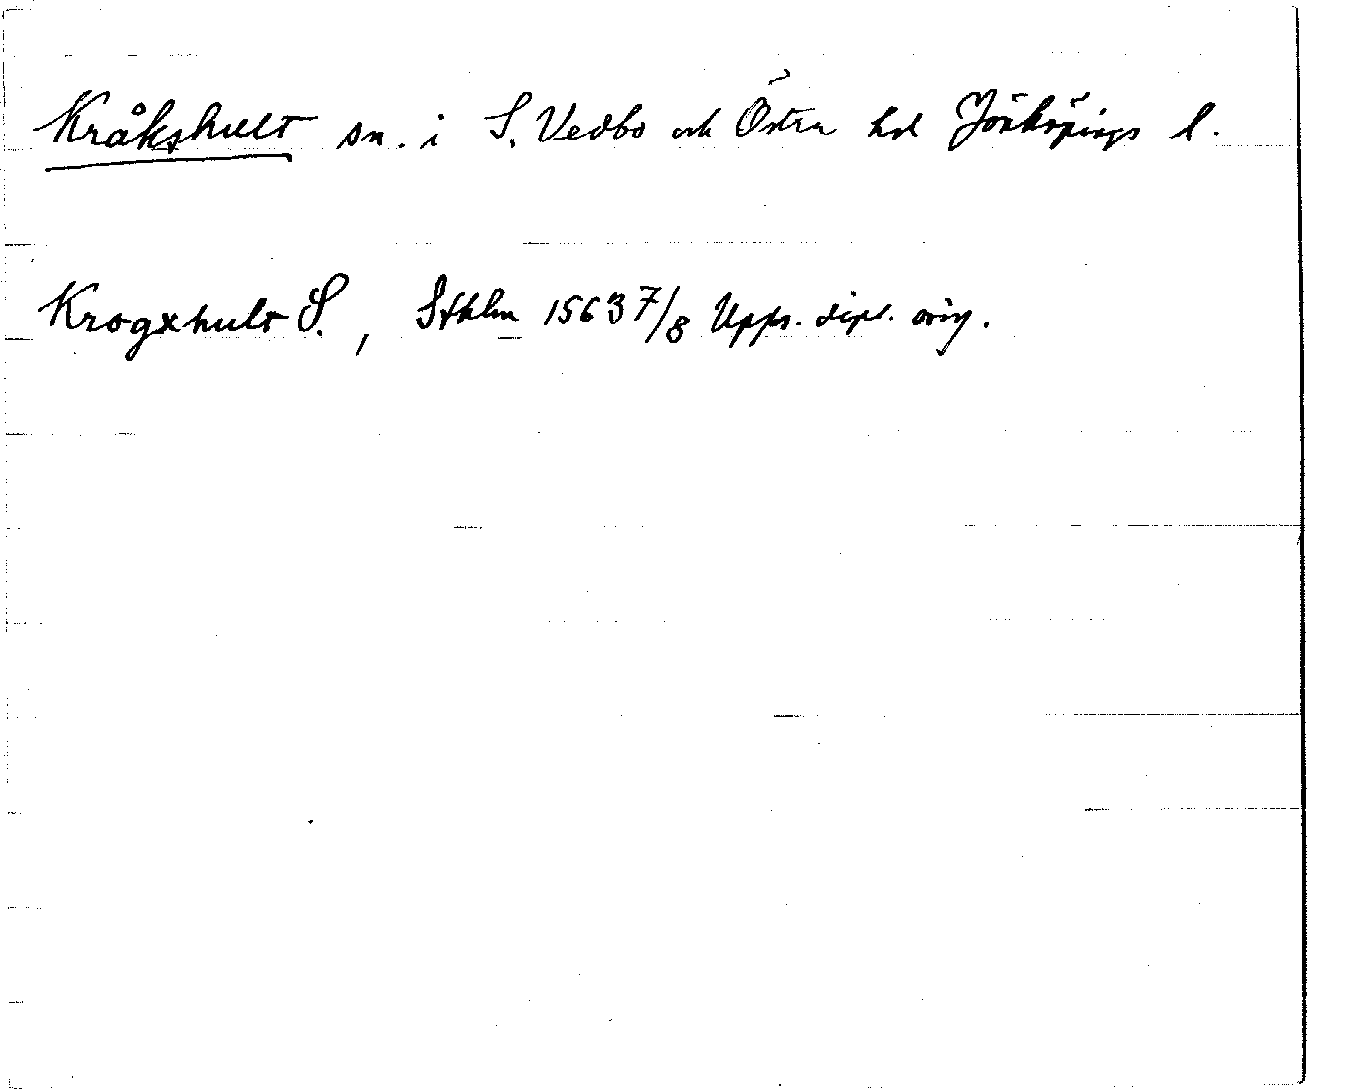 Kråkshult sn. i S. Vedbo och Östra hd Jönköpings l.
Krogxhult S., Sthlm 1563 7/8 Upps. dipl. orig.